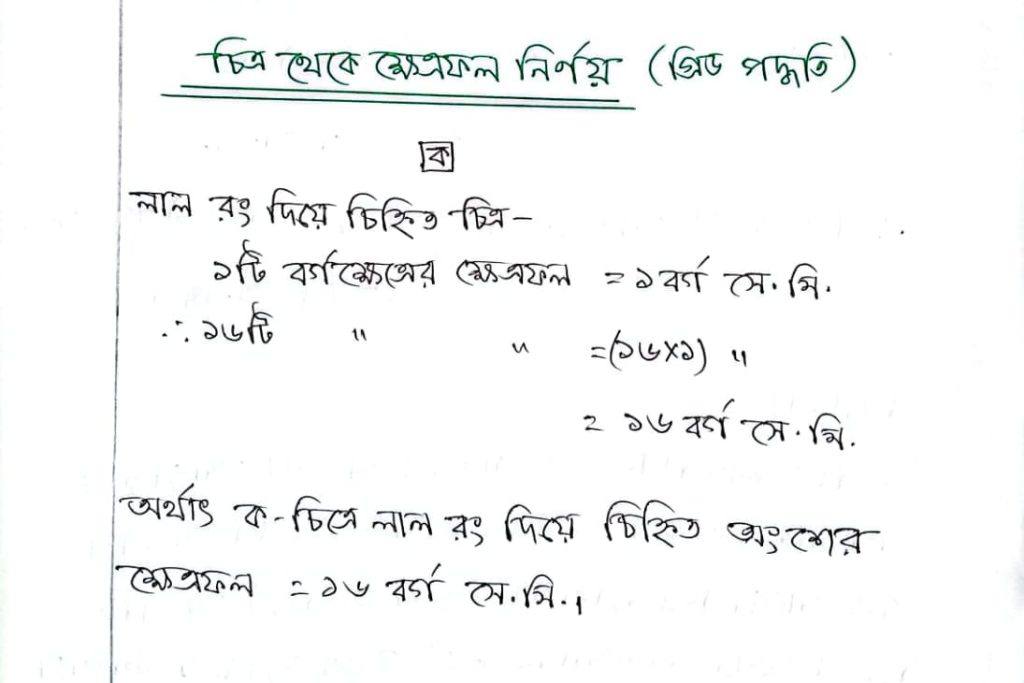 চিত্র থেকে ক্ষেত্রফল নির্ণয় (গ্রিড পদ্ধতি)
ক
লাল রং দিয়ে চিহ্নিত চিত্র-
১টি বর্গক্ষেত্রের ক্ষেত্রফল = ১ বর্গ সে. মি.
∴ ১৬টি " " = (১৬×১) "
= ১৬ বর্গ সে. মি.
অর্থাৎ ক-চিত্রে লাল রং দিয়ে চিহ্নিত অংশের
ক্ষেত্রফল = ১৬ বর্গ সে. মি.।